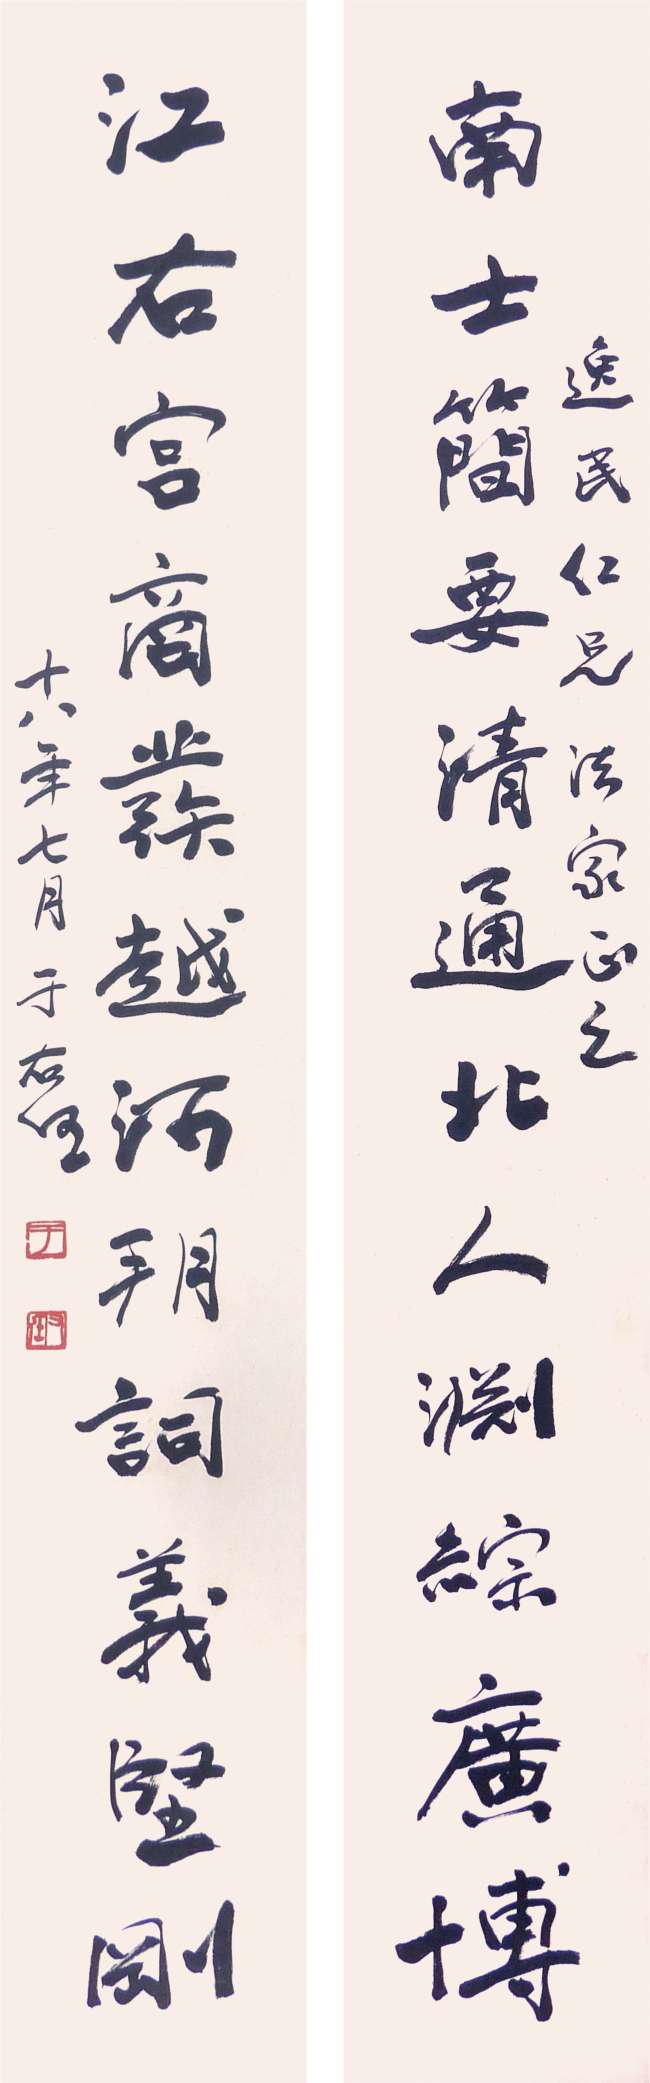 逸民仁兄法家正之
南士簡要清通北人淵綜廣博
江右宮商發越河朔詞義堅剛
十八年七月于右任